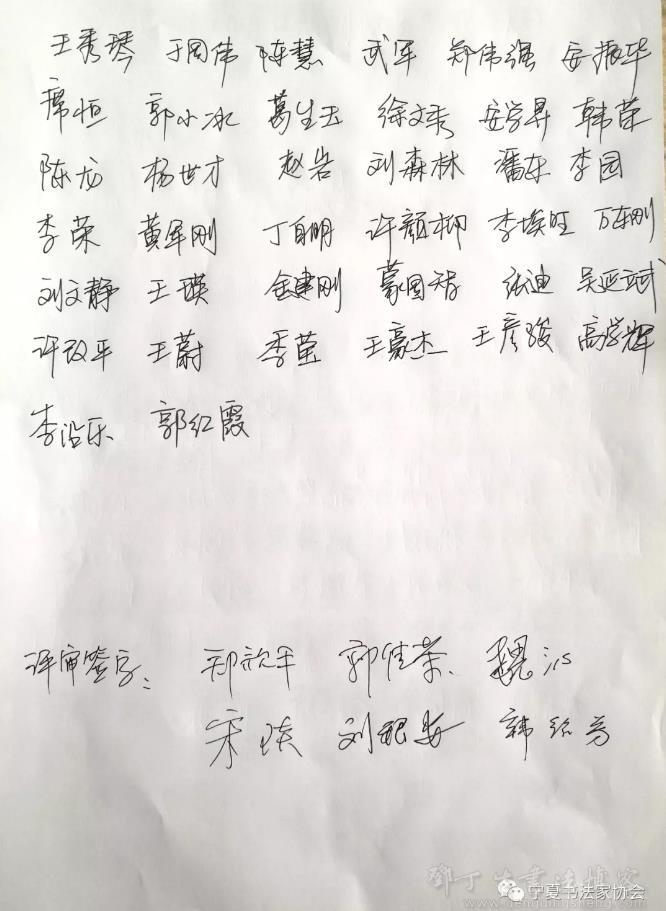 王秀琴 于国伟 陈慧 武军 郑伟强 安振华
席恒 郭小冰 葛生玉 徐文秀 安学昇 韩荣
陈龙 杨世才 赵岩 刘森林 潘东 李园
李荣 黄军刚 丁自明 许颜柳 李埃旺 万东刚
刘文静 王瑛 金建刚 蒙国 张迪 吴延斌
许改平 王蔚 季莹 王豪杰 王彦骏 高学辉
李治乐 郭红霞
评审签字：
郑歆平 郭佳荣 魏
宋琰 刘 韩绍芳
鄧丁生書法博客
宁夏书法家协会